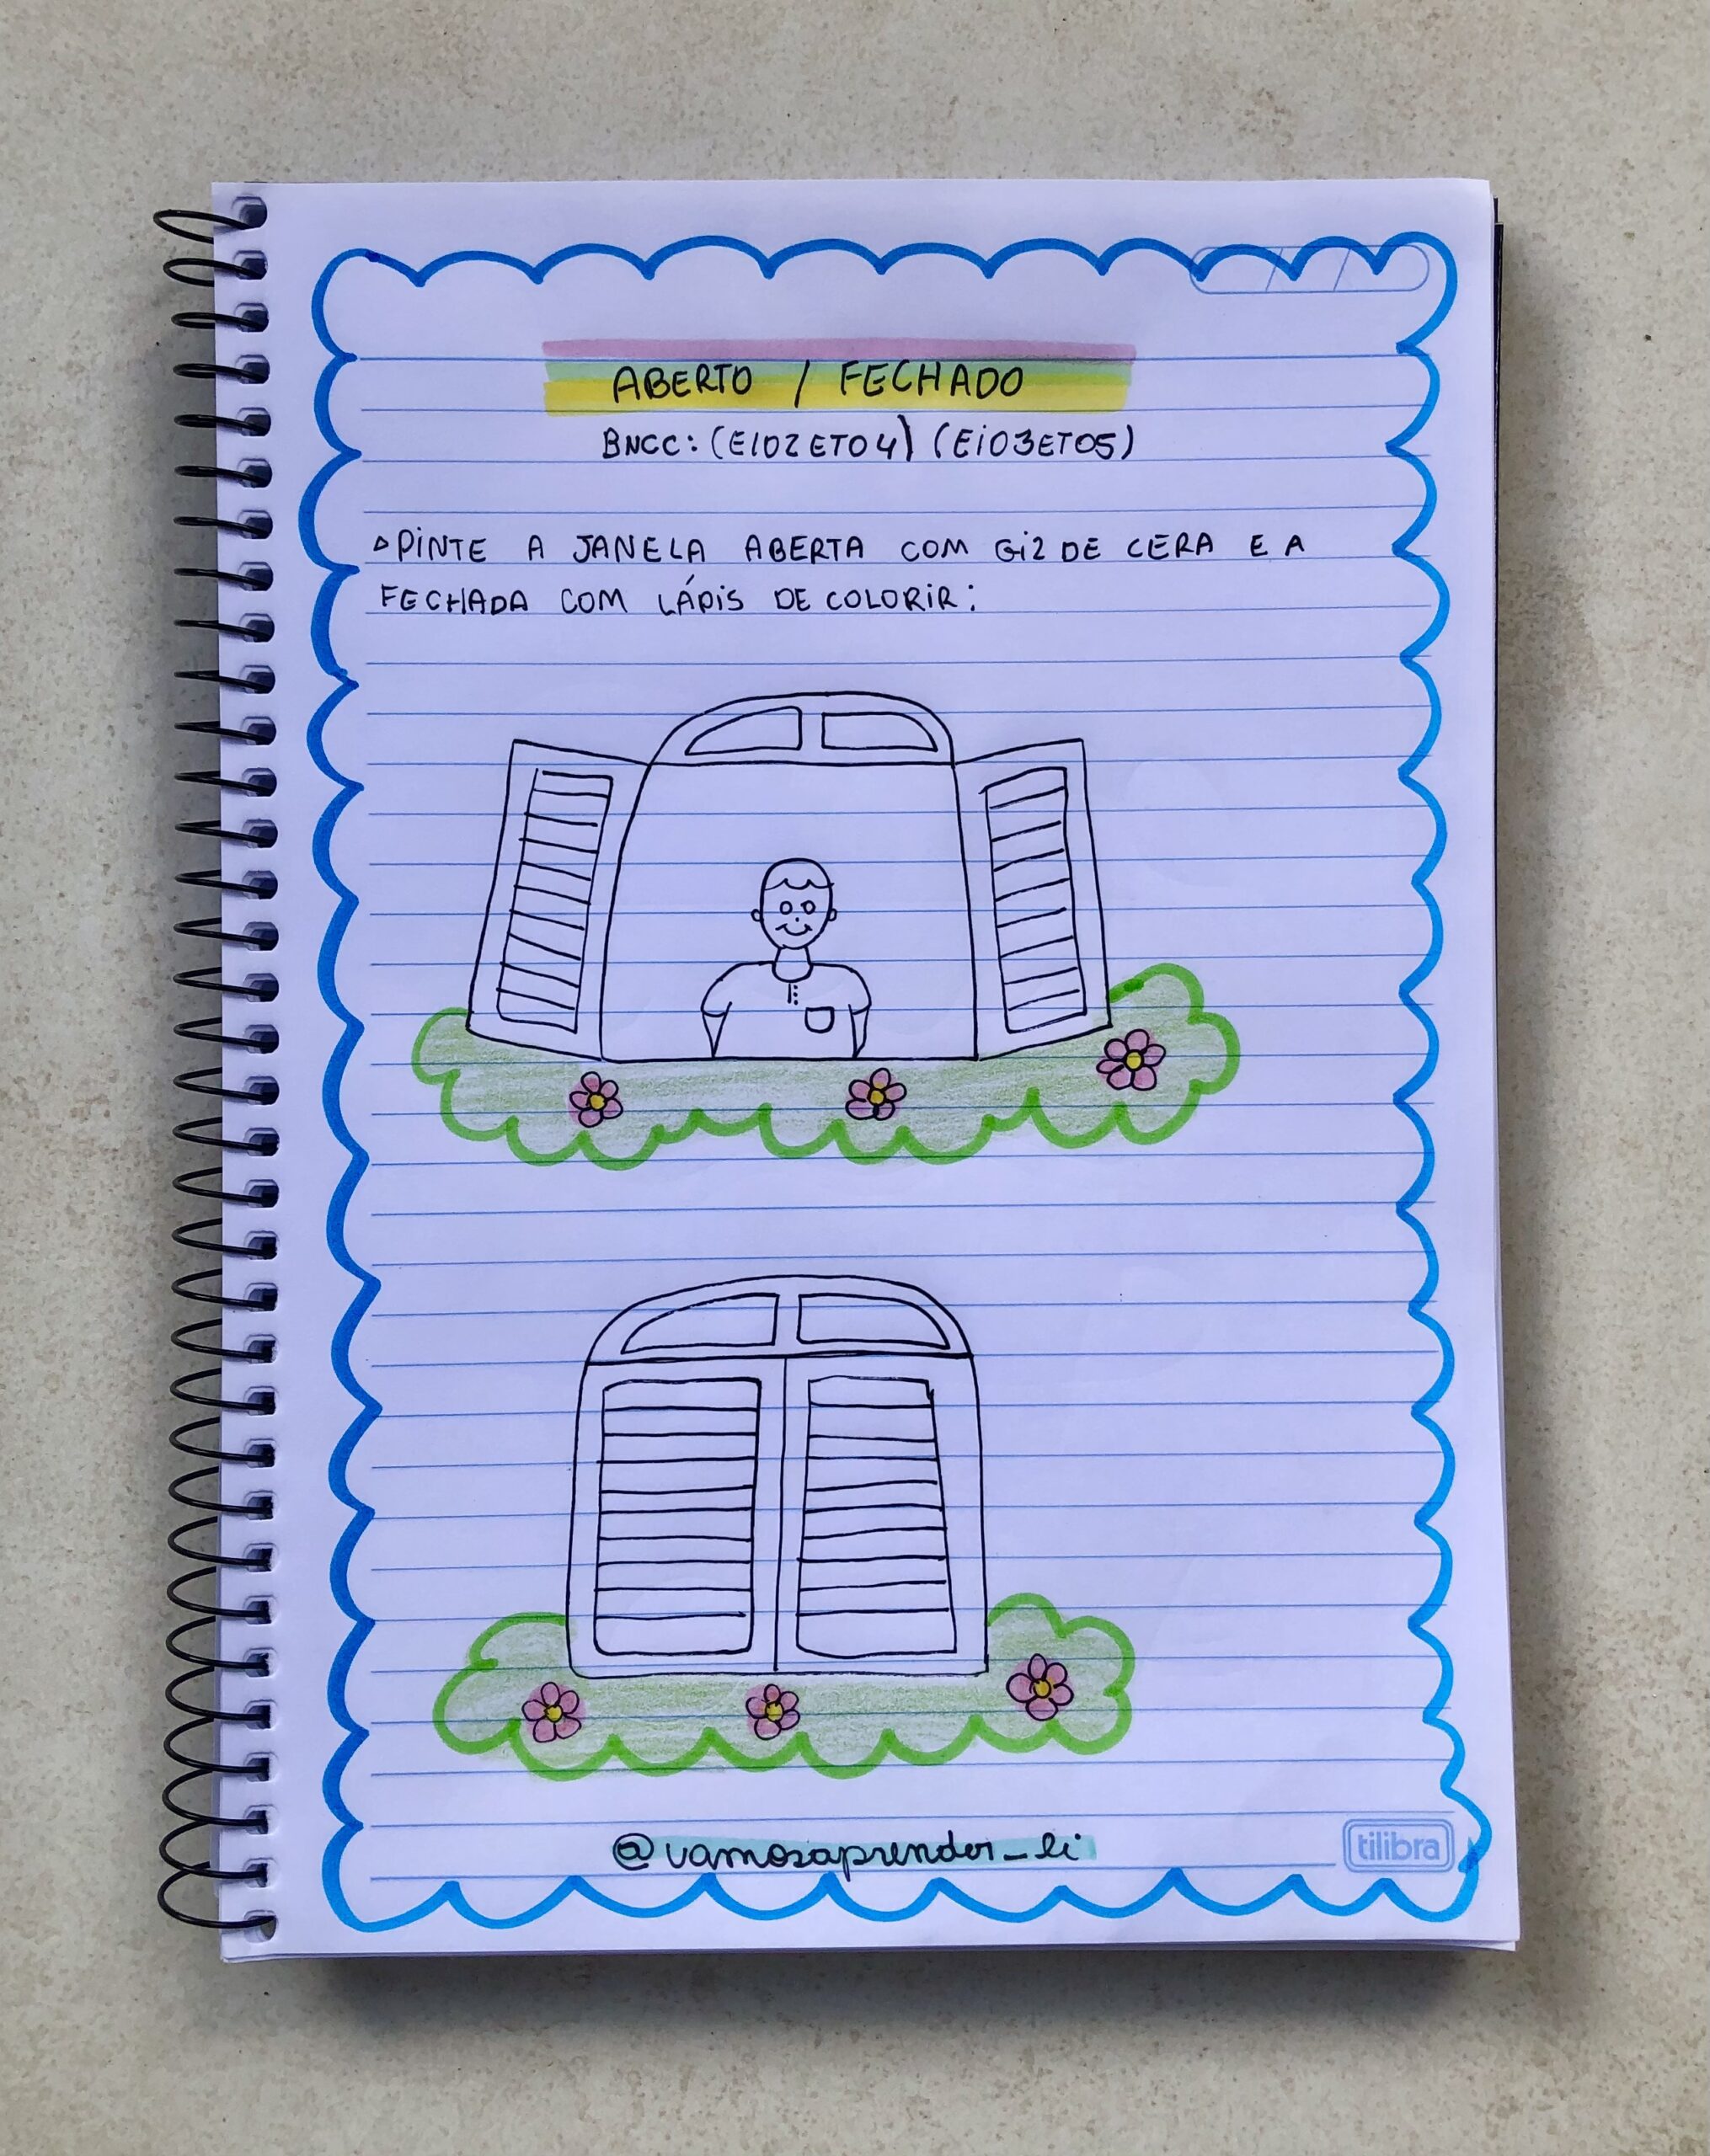 ABERTO / FECHADO
BNCC: (EI02ET04) (Ei03ET05)
▷PiNTE A JANELA ABERTA COM GiZ DE CERA E A
FECHADA COM LÁPiS DE COLORiR:
@vamosaprender_li
tilibra